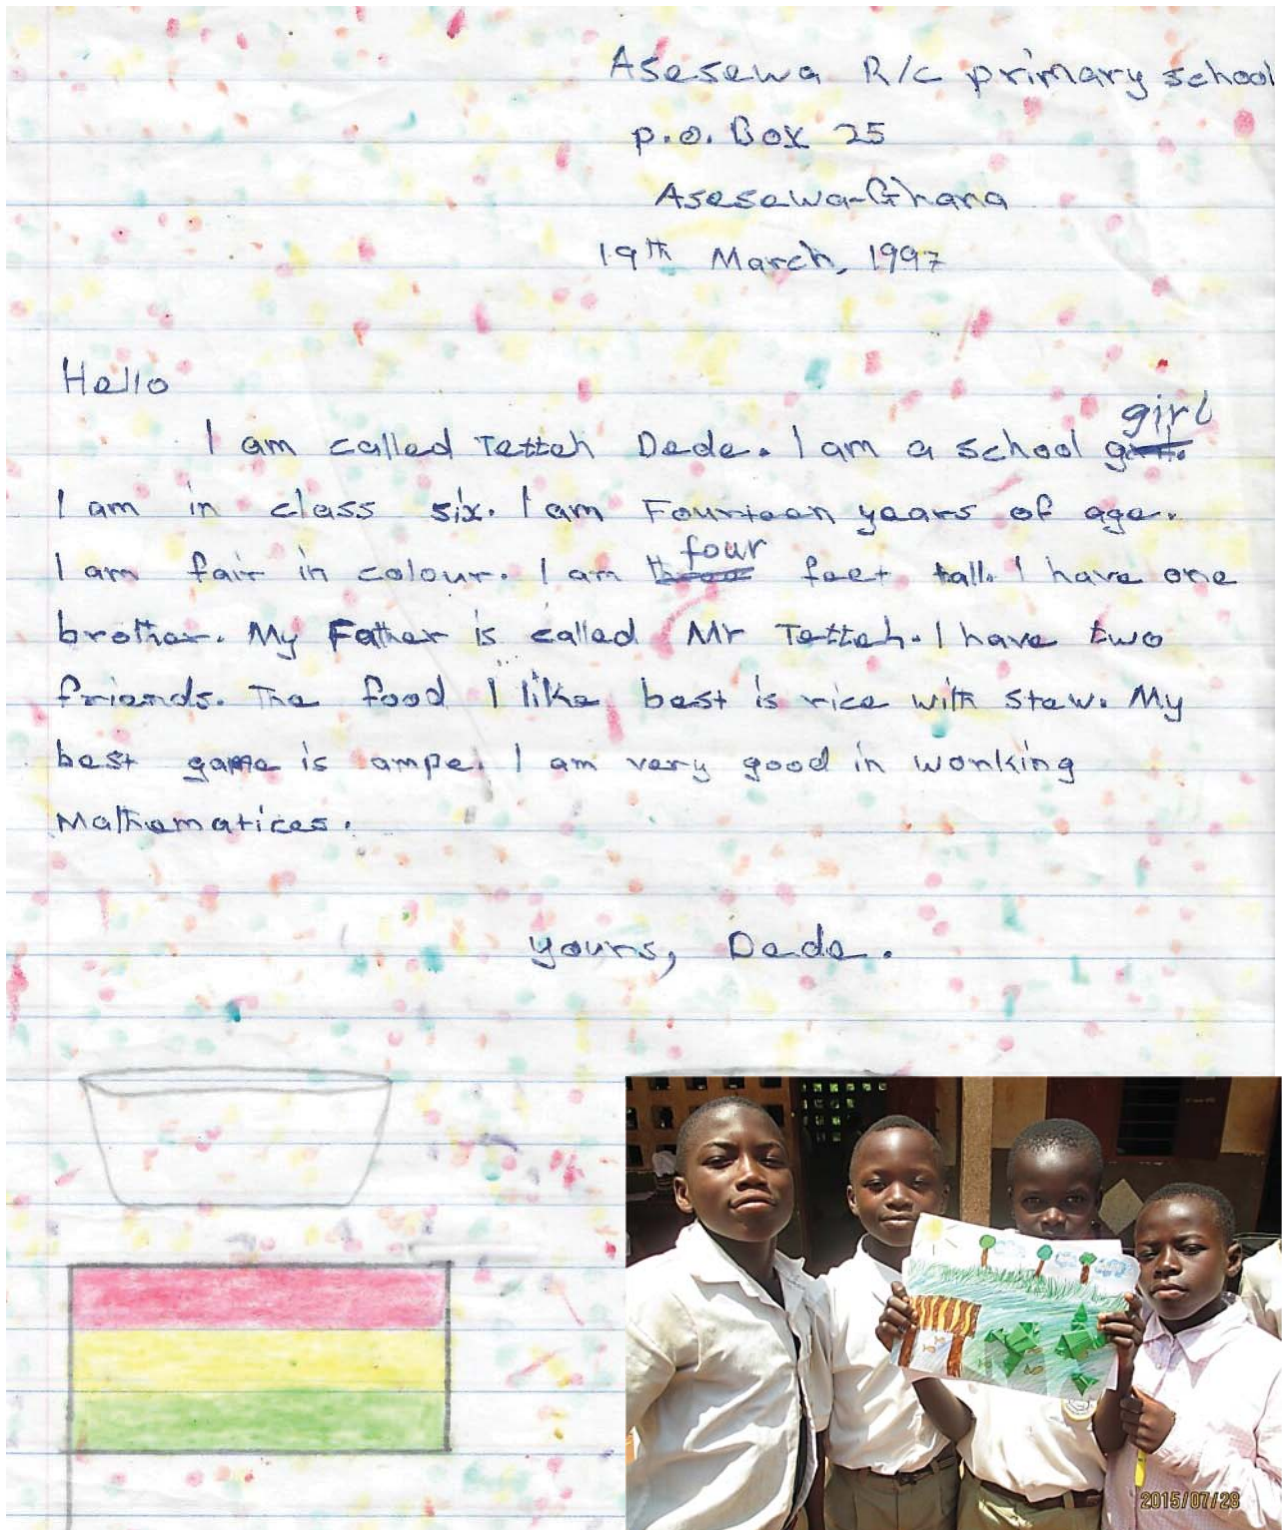 Asesewa R/c primary school
p.o. Box 25
Asesewa-Ghana
19th March, 1997
Hello
I am called Tetteh Dede. I am a school girl
I am in class six. I am Fourteen years of age.
I am fair in colour. I am four feet tall. I have one
brother. My Father is called Mr Tetteh. I have two
friends. The food I like best is rice with stew. My
best game is ampe. I am very good in wonking
Mathematices.
yours, Dede.
2015/07/28